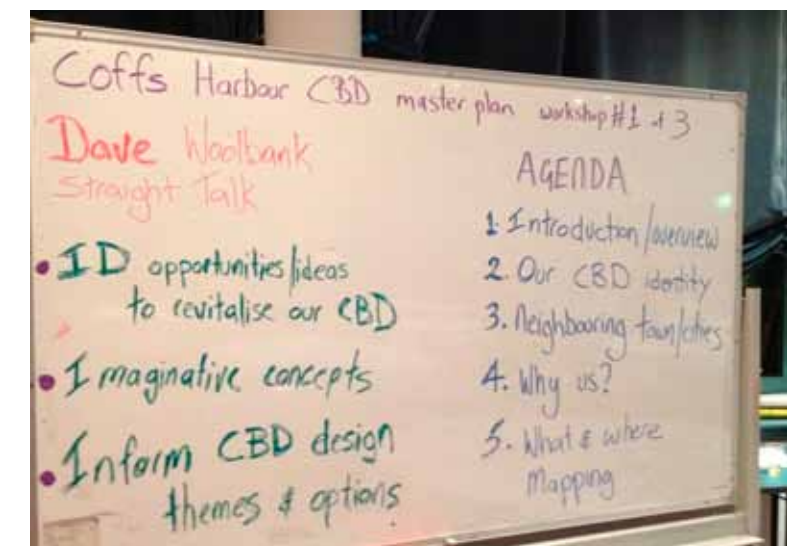 Coffs Harbour CBD master plan workshop #1 of 3
Dave Woolbank
Straight Talk
• ID opportunities/ideas
to revitalise our CBD
• Imaginative concepts
• Inform CBD design
themes & options
AGENDA
1. Introduction/overview
2. Our CBD identity
3. Neighbouring town/cities
4. Why us?
5. What & where
Mapping